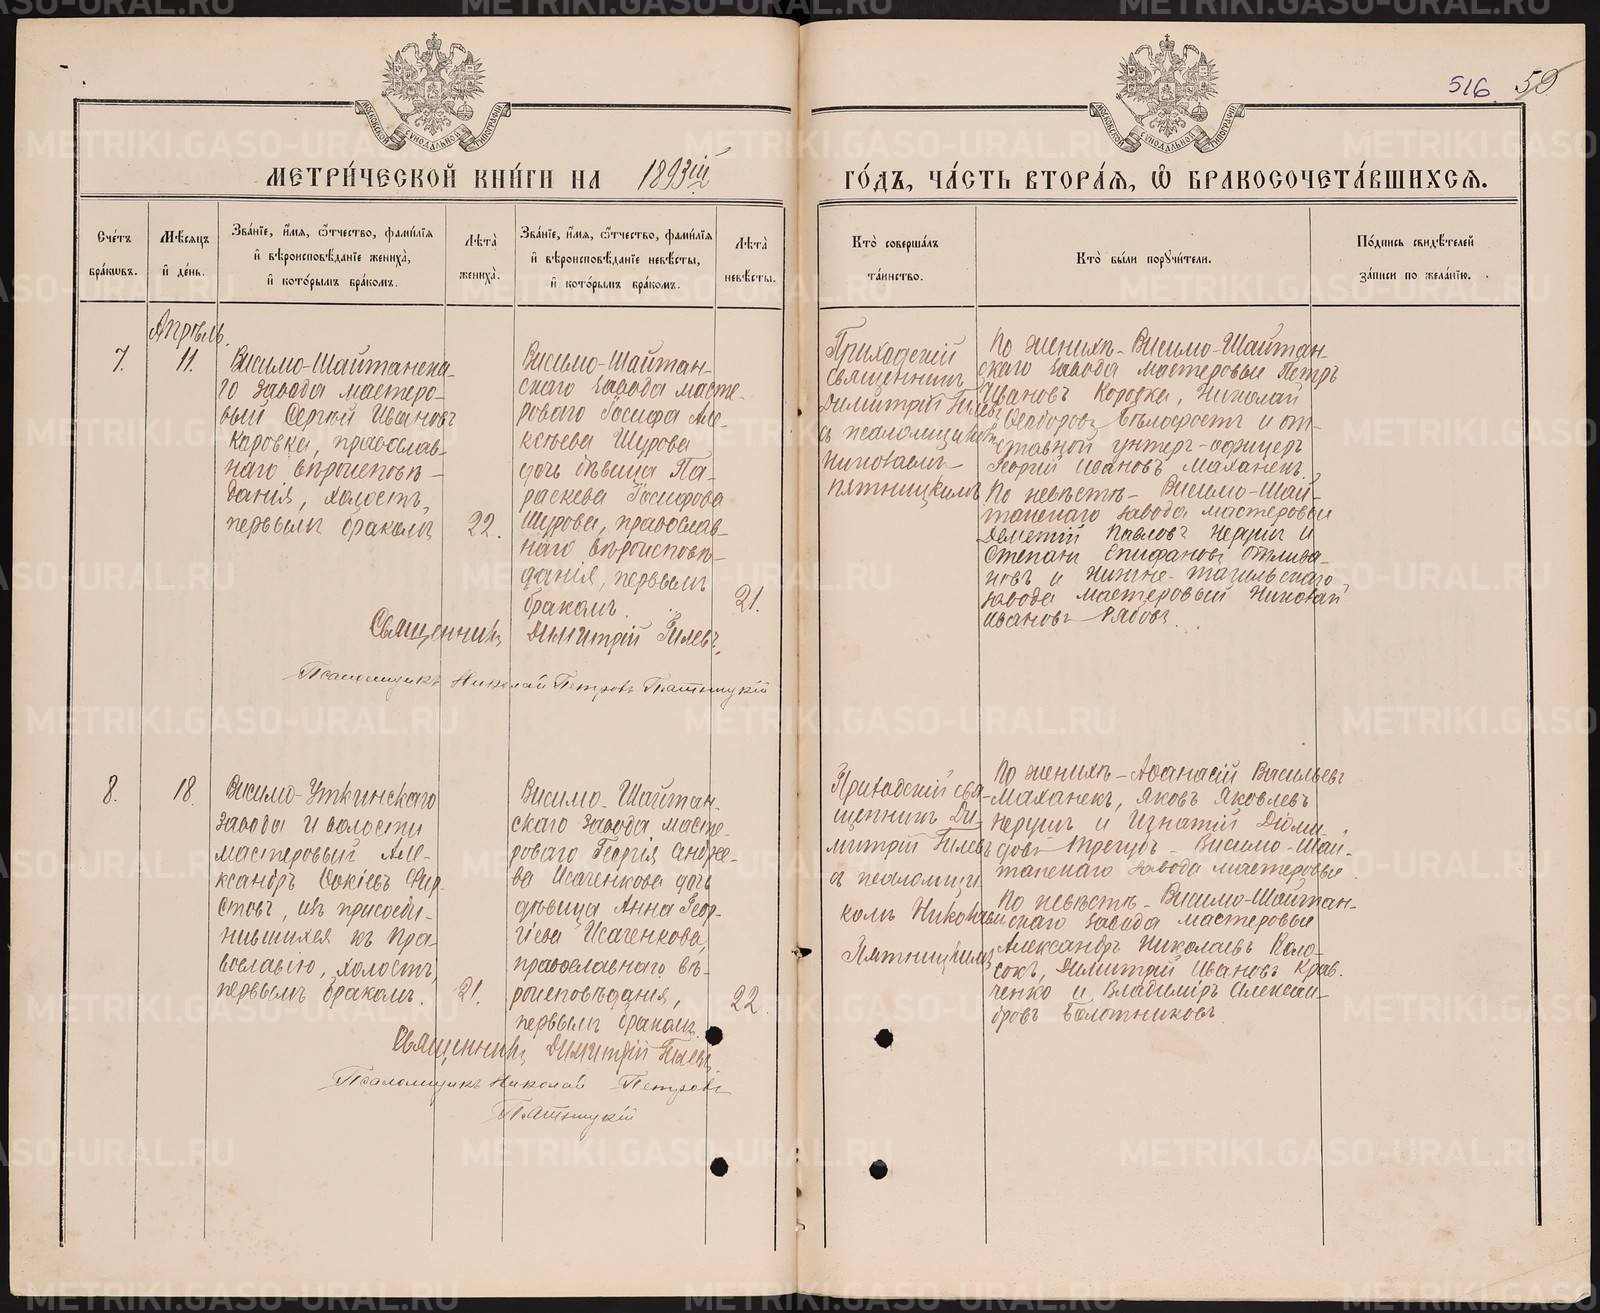 516. 50
МОСКОВСКОЙ СѴНОДАЛЬНОЙ ТИПОГРАФІИ
МОСКОВСКОЙ СѴНОДАЛЬНОЙ ТИПОГРАФІИ
МЕТРИ́ЧЕСКОЙ КНИ́ГИ НА 1893ій
ГО́ДЪ, ЧА́СТЬ ВТОРА́Я, Ѡ БРАКОСОЧЕТА́ВШИХСЯ.
Сче́тъ
бра́кѡвъ.
Мѣ́сяцъ
и҆ де́нь.
Зва́нїе, и҆́мя, ѻ҆́тчество, фами́лїя
и҆ вѣроисповѣ́данїе жениха̀,
и҆ кото́рымъ бра́комъ.
Лѣ́та
жениха̀.
Зва́нїе, и҆́мя, ѻ҆́тчество, фами́лїя
и҆ вѣроисповѣ́данїе невѣ́сты,
и҆ кото́рымъ бра́комъ.
Лѣ́та
невѣ́сты.
Кто̀ соверша́лъ
та́инство.
Кто̀ бы́ли порꙋчи́тели.
По́дпись свидѣ́телей
за́писи по жела́нїю.
Апрѣль.
7.
11.
Висимо-Шайтанска-
го завода мастеро-
вый Сергѣй Ивановъ
Коровка, православ-
наго вѣроисповѣ-
данія, холостъ,
первымъ бракомъ
22.
Висимо-Шайтан-
скаго завода масте-
роваго Іосифа Але-
ксѣева Шурова
дочь дѣвица Па-
раскева Іосифова
Шурова, православ-
наго вѣроисповѣ-
данія, первымъ
бракомъ.
21.
Приходскій
священникъ
Димитрій Гилевъ
съ псаломщикомъ
Николаемъ
Пятницкимъ
По женихѣ - Висимо-Шайтан-
скаго завода мастеровые Петръ
Ивановъ Коровка, Николай
Ѳеодоровъ и от-
ставной унтеръ-офицеръ
Георгій Ивановъ Маханекъ.
По невѣстѣ - Висимо-Шай-
танскаго завода мастеровые
Павловъ и
Степанъ Епифановъ Отлива-
новъ и Нижне-Тагильскаго
завода мастеровый Николай
Ивановъ Рябовъ.
Священникъ Димитрій Гилевъ,
Псаломщикъ Николай Петровъ Пятницкій
8.
18.
Висимо-Уткинскаго
завода и волости
мастеровый Але-
ксандръ Фир-
стовъ, изъ присоеди-
нившихся къ Пра-
вославію, холостъ,
первымъ бракомъ.
21.
Висимо-Шайтан-
скаго завода масте-
роваго Георгія Андре-
ва Исаченкова дочь
дѣвица Анна Геор-
гіева Исаченкова,
православнаго вѣ-
роисповѣданія,
первымъ бракомъ.
22.
Приходскій свя-
щенникъ Ди-
митрій Гилевъ
съ псаломщи-
комъ Николаемъ
Пятницкимъ
По женихѣ - Аѳанасій Васильевъ
Маханекъ, Яковъ Яковлевъ
и Игнатій Діоми-
довъ Трегубъ - Висимо-Шай-
танскаго завода мастеровые.
По невѣстѣ - Висимо-Шайтан-
скаго завода мастеровые
Александръ Николаевъ Коло-
сокъ, Димитрій Ивановъ Крав-
ченко и Владиміръ Алексан-
дровъ Болотниковъ.
Священникъ Димитрій Гилевъ,
Псаломщикъ Николай Петровъ
Пятницкій
METRIKI.GASO-URAL.RU